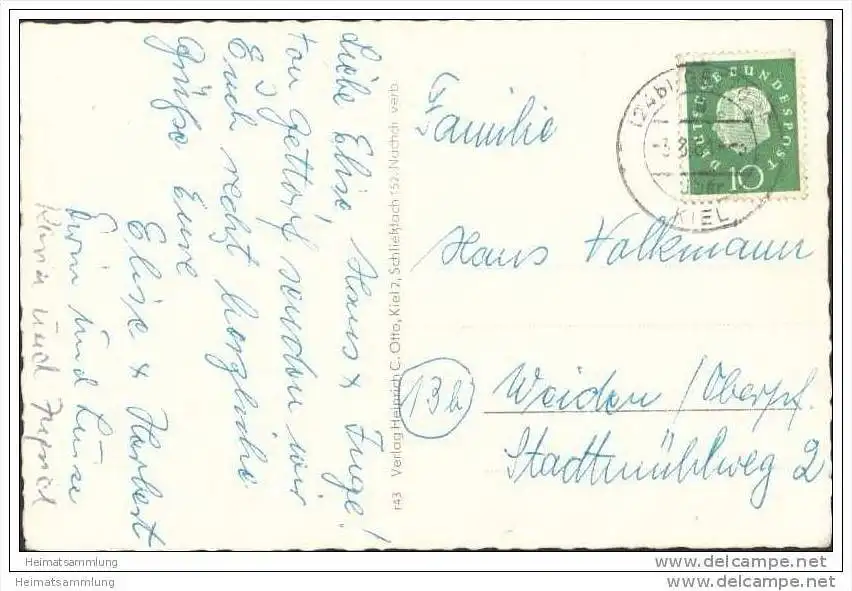 Liebe Elise, Hans & Inge!
Von Gettorf senden wir
Euch recht herzliche
Grüße Eure
Elise & Herbert
Erwin und Luise
Karin und
F43 Verlag Heinrich C. Otto, Kiel 7, Schließfach 152. Nachdr. verb.
Familie
Hans Volkmann
13b
Weiden / Oberpf.
Stadtmühlweg 2
DEUTSCHE BUNDESPOST
10
(24b)
KIEL
Heimatsammlung
Heimatsammlung
www.delcampe.net
www.delcampe.net